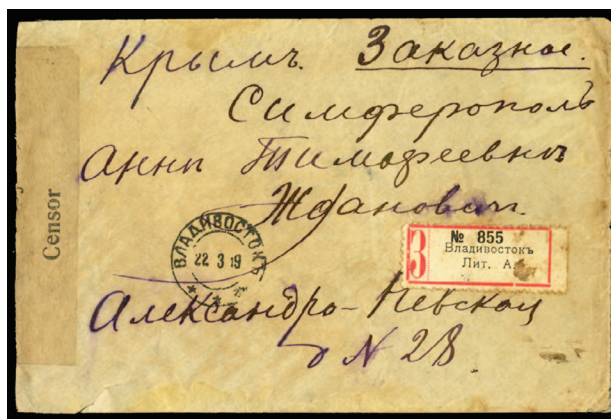 Крымъ. Заказное.
Симферополь
Анны Тимофеевны
Жданович.
Censor
ВЛАДИВОСТОКЪ
22 3 19
З
№ 855
Владивостокъ
Лит. А.
Александро-Невская
№ 28.